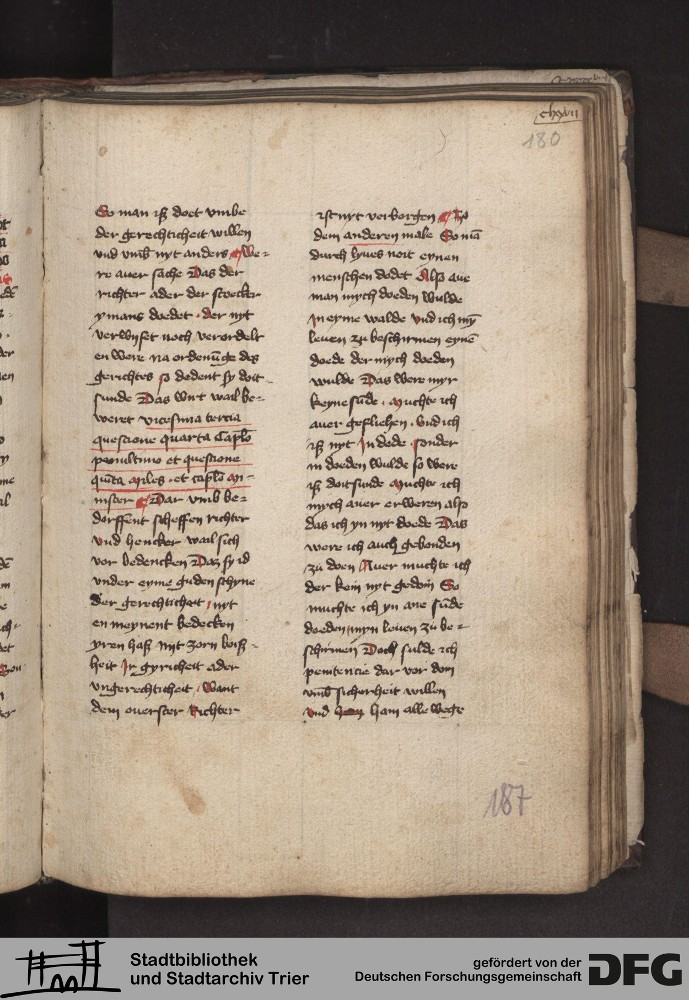 clxxvii
180
So man iß doet vmbe
der gerechticheit willen
vnd vmb nyt anders We-
re auer sache Das der
richter ader der stoecker
ymans doedet · der nyt
verwyset noch verordelt
en were na ordenuge des
gerichtes so dodent sy doit
sunde Das wirt wail be-
weret vicesima tercia
questione quarta Caplo
penultimo et questione
quinta miles · et caplo mi-
nister Dar vmb be-
dorffent scheffen richter
vnd hencker wail sich
vor bedencken Daz sy id
vnder eyme guden schyne
der gerechticheit nyt
en meynent bedecken
yren haß mit zorn boiß-
heit Ir gyricheit ader
vngerechticheit · Want
dem ouerster Richter
ist nyt verborgen Zo
dem anderen male So ma
durch lyues noit eynen
menschen dodet Also aue
man mych doeden wulde
In eyme walde vnd ich my
leuen zu beschirmen eyne
doede der mych doeden
wulde Das were myr
keyne sude · Muchte ich
auer gefliehen · Vnd ich
iß nyt In dede sonder
in doeden wulde so were
iß doitsunde Muchte ich
mych auer erweren also
das ich yn nyt doede Das
were ich auch gebonden
zu doen Auer muchte ich
der kein nyt gedoin So
muchte ich yn ane sude
doeden myn leuen zu be-
schirmen Doch sulde ich
penitencie dar vor doin
vmb sicherheit willen
vnd ham alle wege
187
Stadtbibliothek
und Stadtarchiv Trier
gefördert von der
Deutschen Forschungsgemeinschaft
DFG